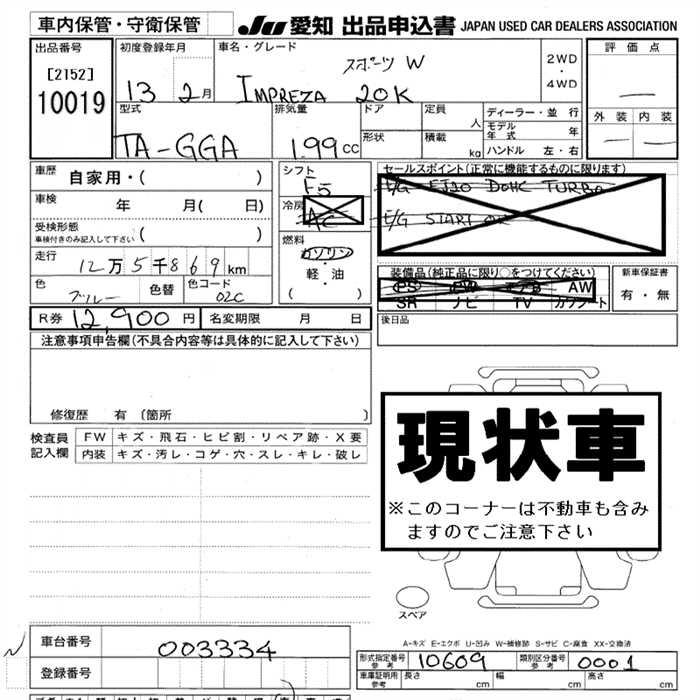 車内保管・守衛保管 JU 愛知 出品申込書 JAPAN USED CAR DEALERS ASSOCIATION
出品番号 初度登録年月 車名・グレード 評価点
[2152] スポーツ W 2WD・4WD
10019 13 2月 IMPREZA 20K
型式 排気量 ドア 定員 人 ディーラー・並行 外装 内装
TA-GGA 1.99cc 形状 積載 kg モデル年式 年
ハンドル 左・右
車歴 自家用・( ) シフト F5 セールスポイント(正常に機能するものに限ります)
E/G EJ20 DOHC TURBO
車検 年 月( 日) 冷房 AC E/G START OK
受検形態 車検付きのみ記入して下さい ( ) 燃料 ガソリン・軽・油 ( )
走行 12万5千869km 装備品(純正品に限り○をつけてください) 新車保証書
PS PW エアB AW 有・無
色 ブルー 色替 色コード 02C SR ナビ TV カワシート
R券 12,900円 名変期限 月 日 後日品
注意事項申告欄(不具合内容等は具体的に記入して下さい)
修復歴 有(箇所 )
現状車
※このコーナーは不動車も含みますのでご注意下さい
検査員記入欄 FW キズ・飛石・ヒビ割・リペア跡・X要
内装 キズ・汚レ・コゲ・穴・スレ・キレ・破レ
スペア
A-キズ E-エクボ U-凹み W-補修跡 S-サビ C-腐食 XX-交換済
車台番号 003334
形式指定番号 参考 10609 類別区分番号 参考 0001
登録番号 車庫証明用 参考 長さ cm 幅 cm 高さ cm